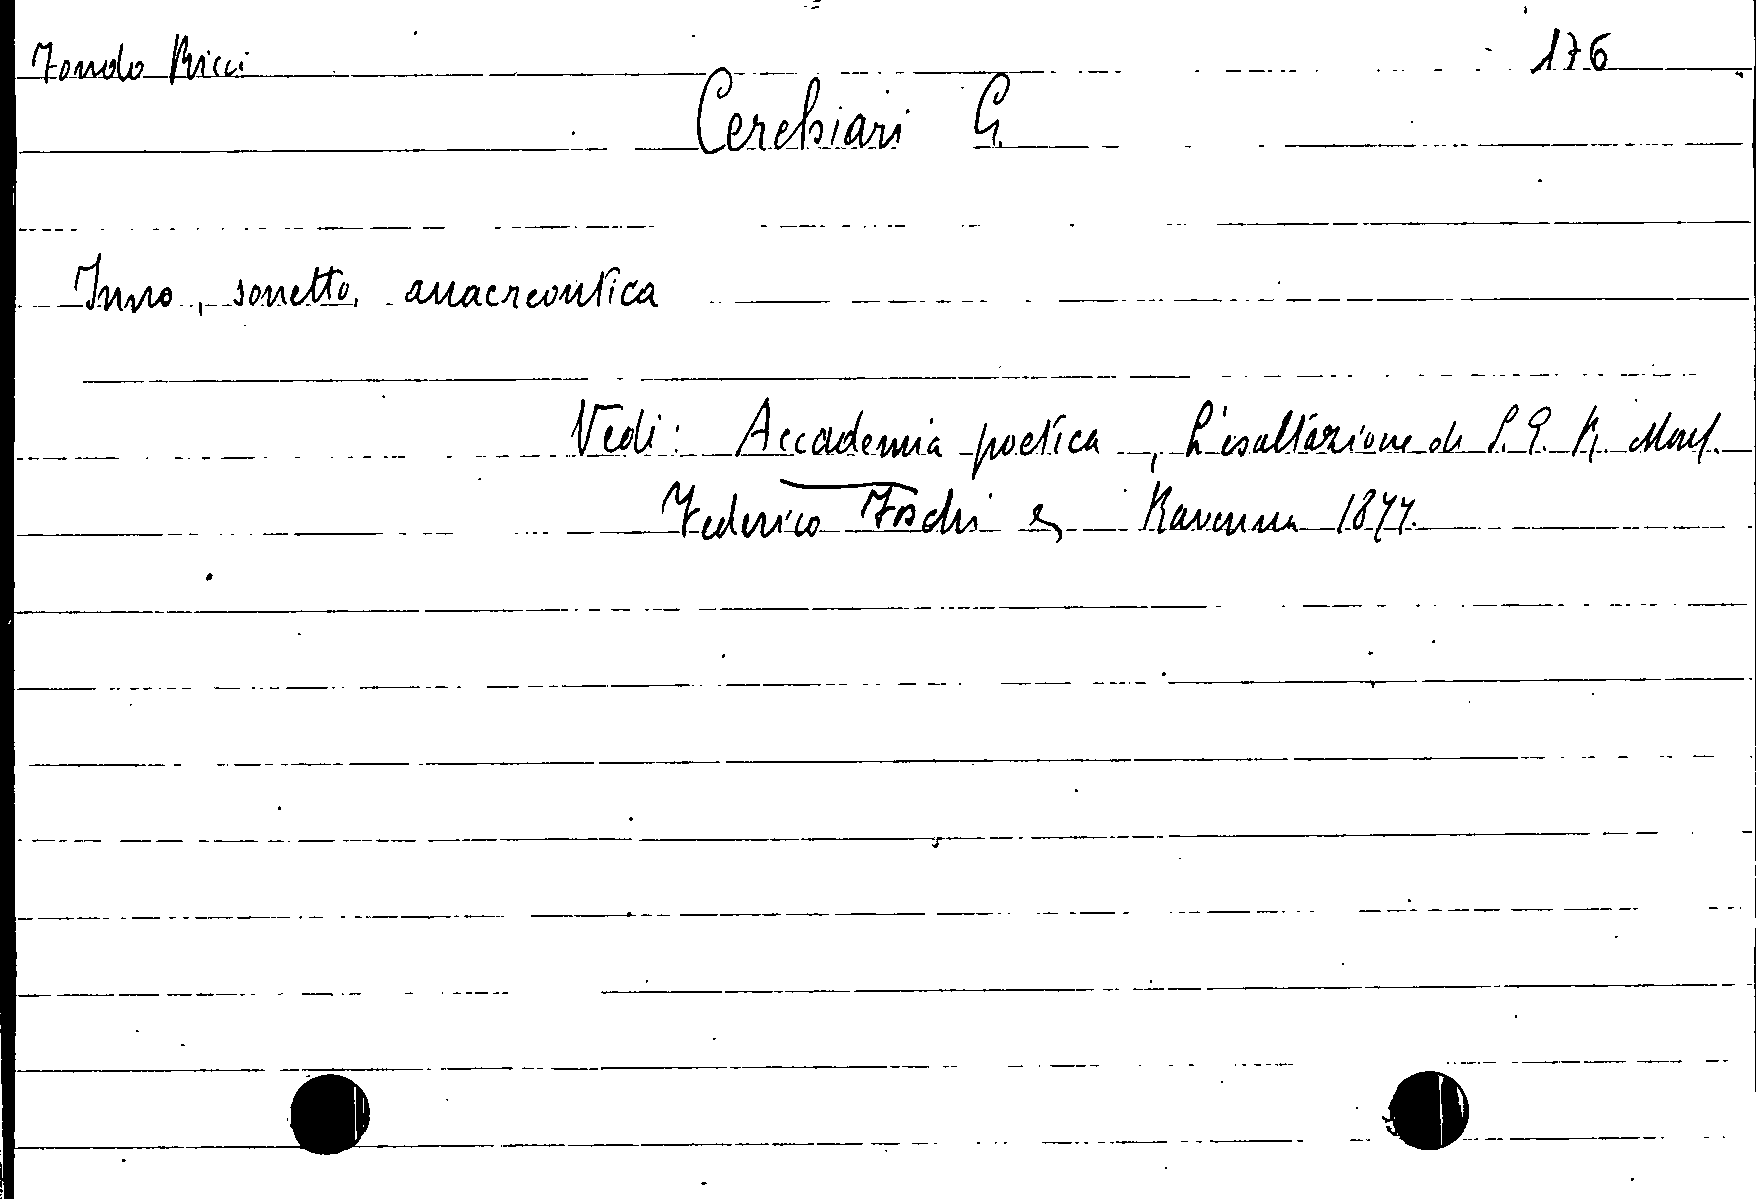 Fondo Ricci 176
Cerchiari G.
Inno, sonetto, anacreontica
Vedi: Accademia poetica, L'esaltazione di S. E. R. Mons.
Federico Foschi Ravenna 1877.